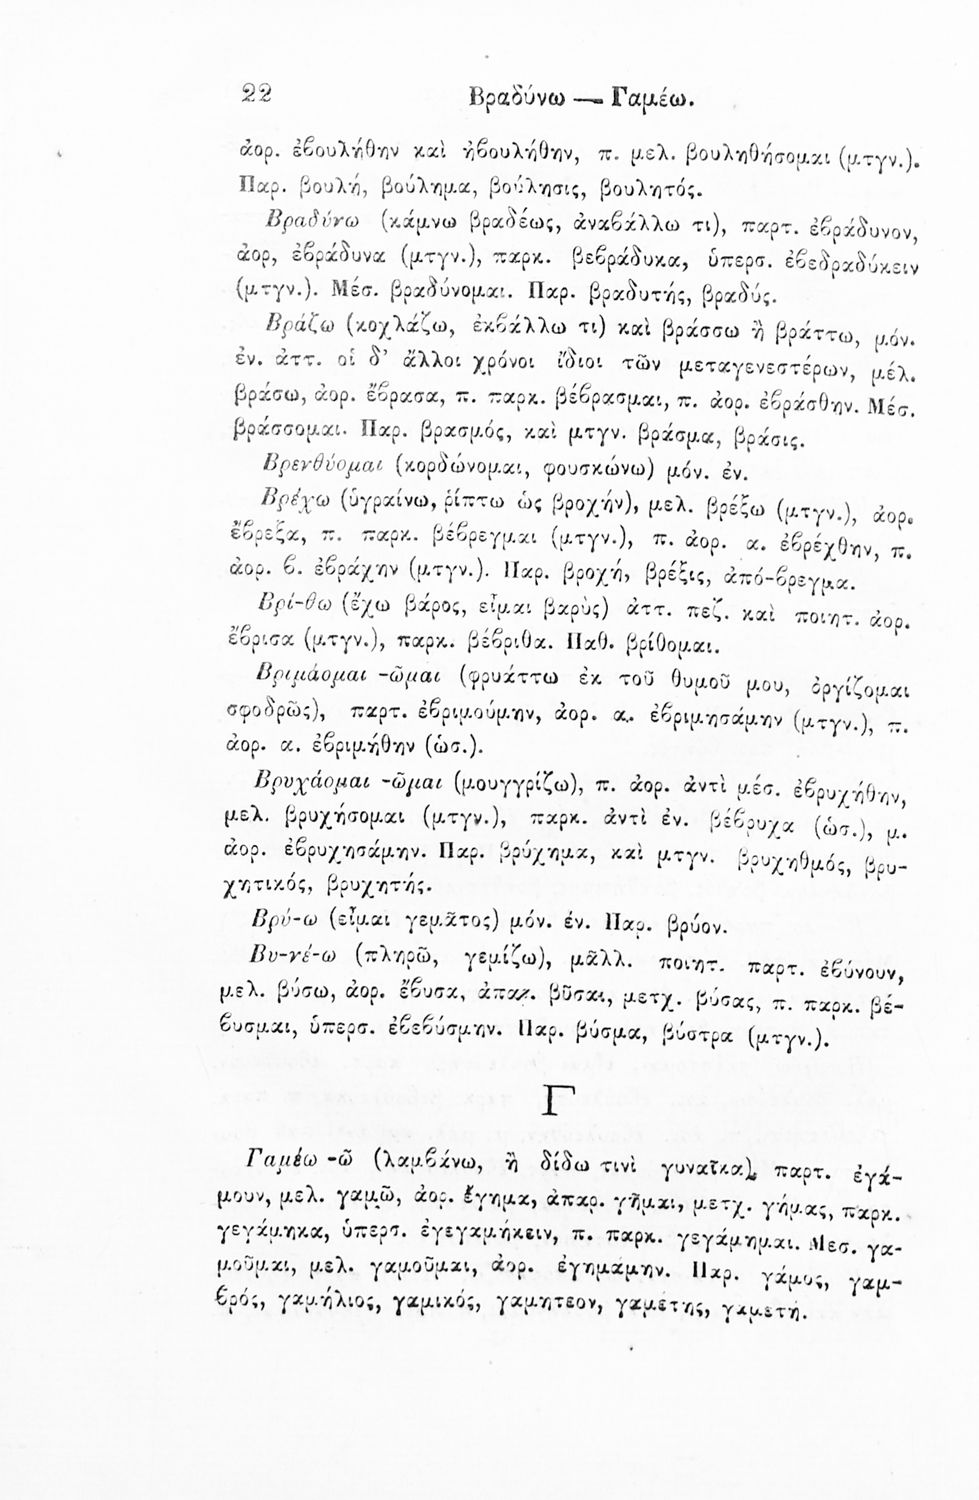 22 Βραδύνω — Γαμέω.
ἀορ. ἐϐουλήθην καὶ ἠϐουλήθην, π. μελ. βουληθήσομαι (μτγν.).
Παρ. βουλή, βούλημα, βούλησις, βουλητός.
Βραδύνω (κάμνω βραδέως, ἀναϐάλλω τι), παρτ. ἐϐράδυνον,
ἀορ, ἐϐράδυνα (μτγν.), παρκ. βεϐράδυκα, ὑπερσ. ἐϐεδραδύκειν
(μτγν.). Μέσ. βραδύνομαι. Παρ. βραδυτής, βραδύς.
Βράζω (κοχλάζω, ἐκϐάλλω τι) καὶ βράσσω ἢ βράττω, μόν.
ἐν. ἀττ. οἱ δ' ἄλλοι χρόνοι ἴδιοι τῶν μεταγενεστέρων, μέλ.
βράσω, ἀορ. ἔϐρασα, π. παρκ. βέϐρασμαι, π. ἀορ. ἐϐράσθην. Μέσ.
βράσσομαι. Παρ. βρασμός, καὶ μτγν. βράσμα, βράσις.
Βρενθύομαι (κορδώνομαι, φουσκώνω) μόν. ἐν.
Βρέχω (ὑγραίνω, ῥίπτω ὡς βροχήν), μελ. βρέξω (μτγν.), ἀορ.
ἔϐρεξα, π. παρκ. βέϐρεγμαι (μτγν.), π. ἀορ. α. ἐϐρέχθην, π.
ἀορ. ϐ. ἐϐράχην (μτγν.). Παρ. βροχή, βρέξις, ἀπό-ϐρεγμα.
Βρί-θω (ἔχω βάρος, εἶμαι βαρὺς) ἀττ. πεζ. καὶ ποιητ. ἀορ.
ἔϐρισα (μτγν.), παρκ. βέϐριθα. Παθ. βρίθομαι.
Βριμάομαι -ῶμαι (φρυάττω ἐκ τοῦ θυμοῦ μου, ὀργίζομαι
σφοδρῶς), παρτ. ἐϐριμούμην, ἀορ. α. ἐϐριμησάμην (μτγν.), π.
ἀορ. α. ἐϐριμήθην (ὡσ.).
Βρυχάομαι -ῶμαι (μουγγρίζω), π. ἀορ. ἀντὶ μέσ. ἐϐρυχήθην,
μελ. βρυχήσομαι (μτγν.), παρκ. ἀντὶ ἐν. βέϐρυχα (ὡσ.), μ.
ἀορ. ἐϐρυχησάμην. Παρ. βρύχημα, καὶ μτγν. βρυχηθμός, βρυ-
χητικός, βρυχητής.
Βρύ-ω (εἶμαι γεμᾶτος) μόν. ἐν. Παρ. βρύον.
Βυ-νέ-ω (πληρῶ, γεμίζω), μᾶλλ. ποιητ. παρτ. ἐϐύνουν,
μελ. βύσω, ἀορ. ἔϐυσα, ἀπαρ. βῦσαι, μετχ. βύσας, π. παρκ. βέ-
ϐυσμαι, ὑπερσ. ἐϐεϐύσμην. Παρ. βύσμα, βύστρα (μτγν.).
Γ
Γαμέω -ῶ (λαμϐάνω, ἢ δίδω τινὶ γυναῖκα), παρτ. ἐγά-
μουν, μελ. γαμῶ, ἀορ. ἔγημα, ἀπαρ. γῆμαι, μετχ. γήμας, παρκ.
γεγάμηκα, ὑπερσ. ἐγεγαμήκειν, π. παρκ. γεγάμημαι. Μεσ. γα-
μοῦμαι, μελ. γαμοῦμαι, ἀορ. ἐγημάμην. Παρ. γάμος, γαμ-
ϐρός, γαμήλιος, γαμικός, γαμητεον, γαμέτης, γαμετή.